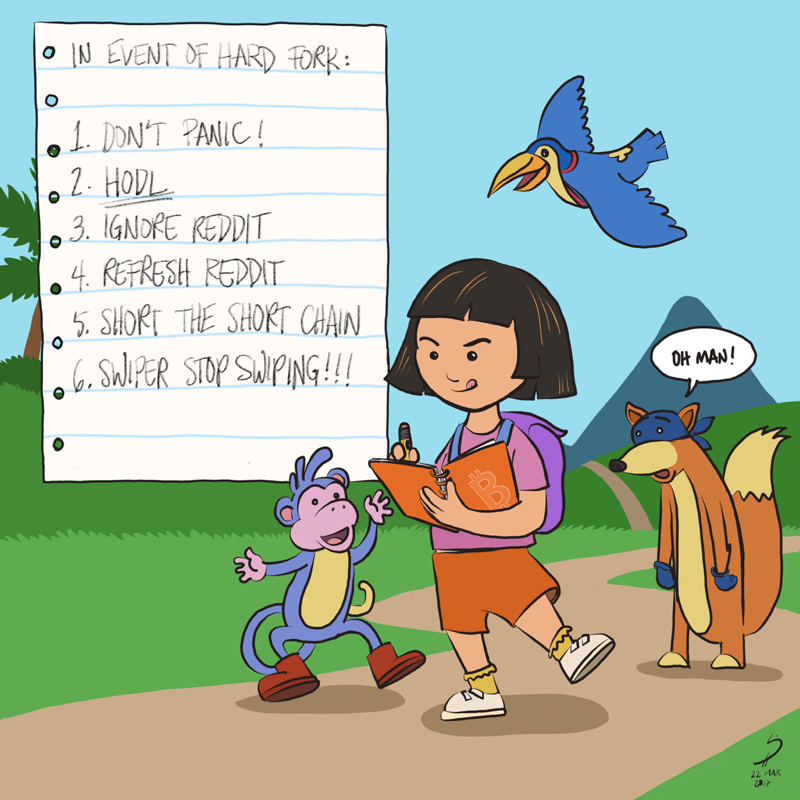 IN EVENT OF HARD FORK:
1. DON'T PANIC!
2. HODL
3. IGNORE REDDIT
4. REFRESH REDDIT
5. SHORT THE SHORT CHAIN
6. SWIPER STOP SWIPING!!!
OH MAN!
₿
22 MAR
2017